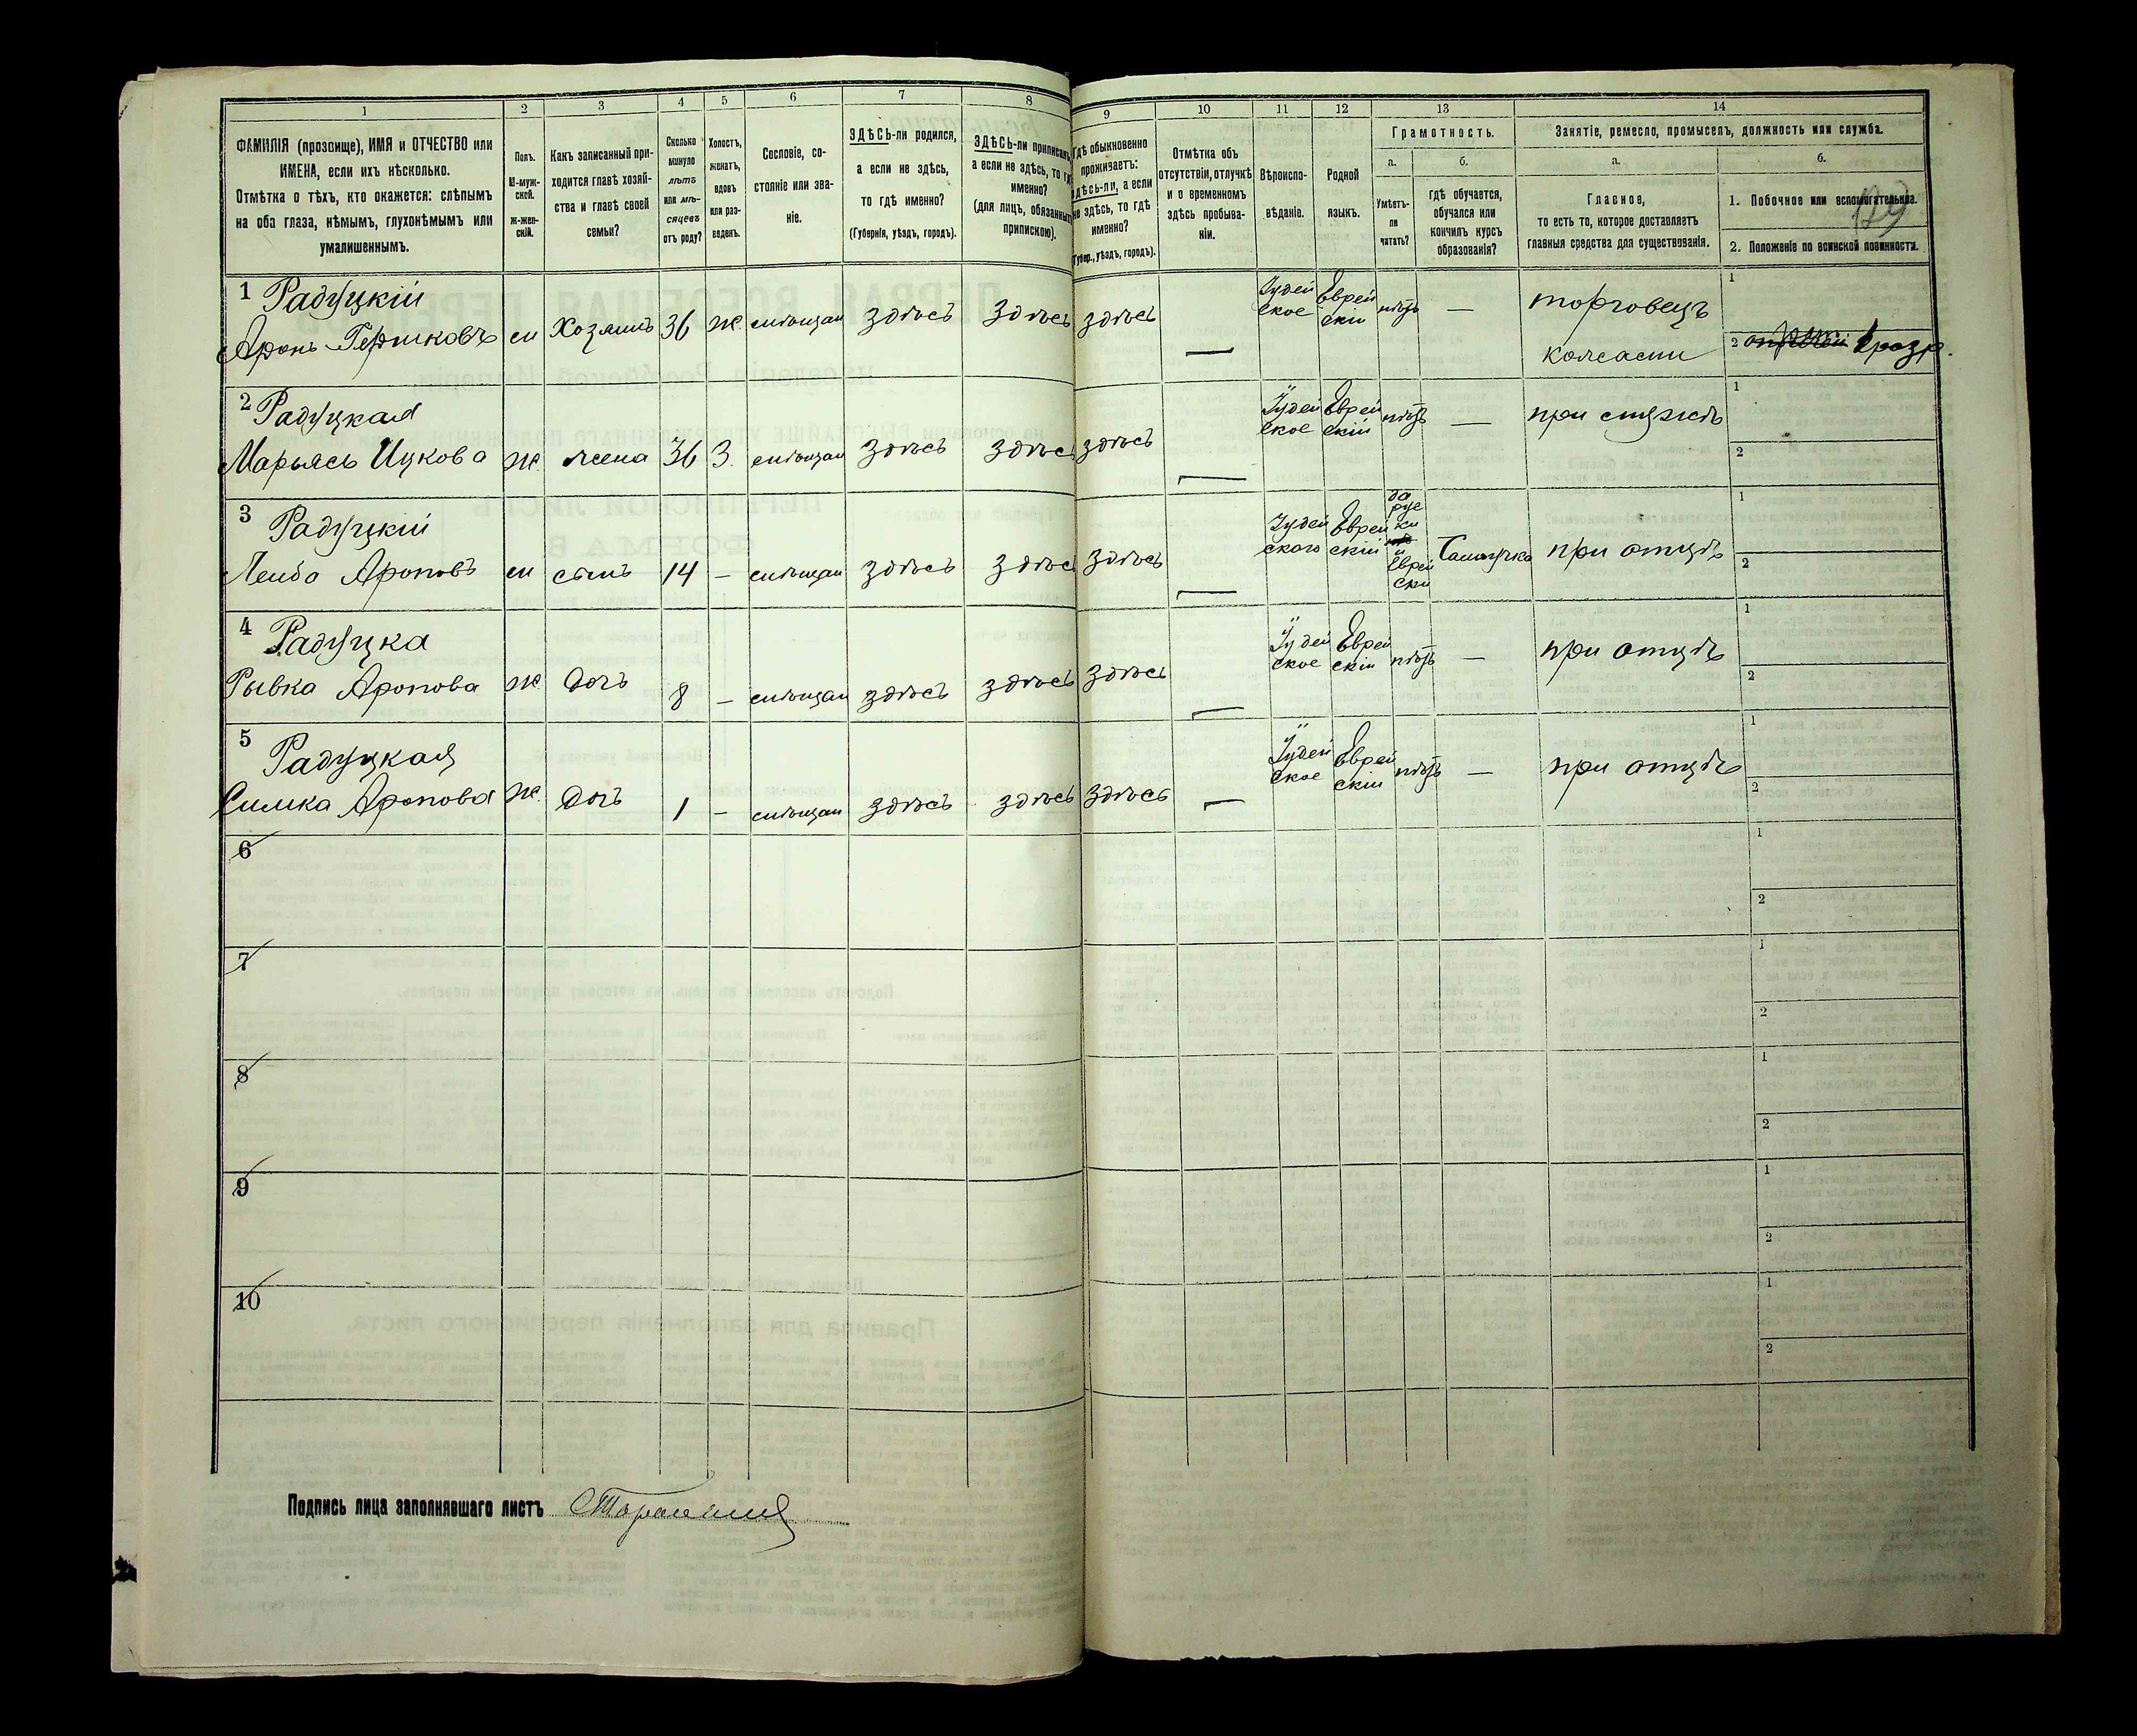 1 2 3 4 5 6 7 8 9 10 11 12 13 14
ФАМИЛІЯ (прозвище), ИМЯ и ОТЧЕСТВО или
ИМЕНА, если ихъ нѣсколько.
Отмѣтка о тѣхъ, кто окажется: слѣпымъ
на оба глаза, нѣмымъ, глухонѣмымъ или
умалишеннымъ.
Полъ.
М-муж-
ской.
ж-жен-
скій.
Какъ записанный при-
ходится главѣ хозяй-
ства и главѣ своей
семьи?
Сколько
минуло
лѣтъ
или мѣ-
сяцевъ
отъ роду?
Холостъ,
женатъ,
вдовъ
или раз-
веденъ.
Сословіе, со-
стояніе или зва-
ніе.
ЗДѢСЬ-ли родился,
а если не здѣсь,
то гдѣ именно?
(Губернія, уѣздъ, городъ).
ЗДѢСЬ-ли приписанъ,
а если не здѣсь, то гдѣ
именно?
(для лицъ, обязанныхъ
припискою).
Гдѣ обыкновенно
проживаетъ:
здѣсь-ли, а если
не здѣсь, то гдѣ
именно?
(Губер., уѣздъ, городъ).
Отмѣтка объ
отсутствіи, отлучкѣ
и о временномъ
здѣсь пребыва-
ніи.
Вѣроиспо-
вѣданіе.
Родной
языкъ.
Грамотность.
а.
Умѣетъ-
ли
читать?
б.
гдѣ обучается,
обучался или
кончилъ курсъ
образованія?
Занятіе, ремесло, промыселъ, должность или служба.
а.
Главное,
то есть то, которое доставляетъ
главныя средства для существованія.
б.
1. Побочное или вспомогательное.
2. Положеніе по воинской повинности.
1 Радуцкій
Аронъ Гершковъ м Хозяинъ 36 ж. мѣщан здѣсь здѣсь здѣсь — Іудей Еврей нѣтъ — торговецъ 1
ское скій кожами 2 1 разр.
2 Радуцкая
Марьясь Ицкова ж жена 36 З. мѣщан здѣсь здѣсь здѣсь — Іудей Еврей нѣтъ — при мужѣ 1
ское скій 2
3 Радуцкій
Лейба Ароновъ м сынъ 14 — мѣщан здѣсь здѣсь здѣсь — Іудей Еврей да при отцѣ 1
ского скій рус
ки
и
Еврей
ски 2
4 Радуцка
Рывка Аронова ж дочь 8 — мѣщан здѣсь здѣсь здѣсь — Іудей Еврей нѣтъ — при отцѣ 1
ское скій 2
5 Радуцкая
Симка Аронова ж. дочь 1 — мѣщан здѣсь здѣсь здѣсь — Іудей Еврей нѣтъ — при отцѣ 1
ское скій 2
6 1
2
7 1
2
8 1
2
9 1
2
10 1
2
Подпись лица заполнявшаго листъ